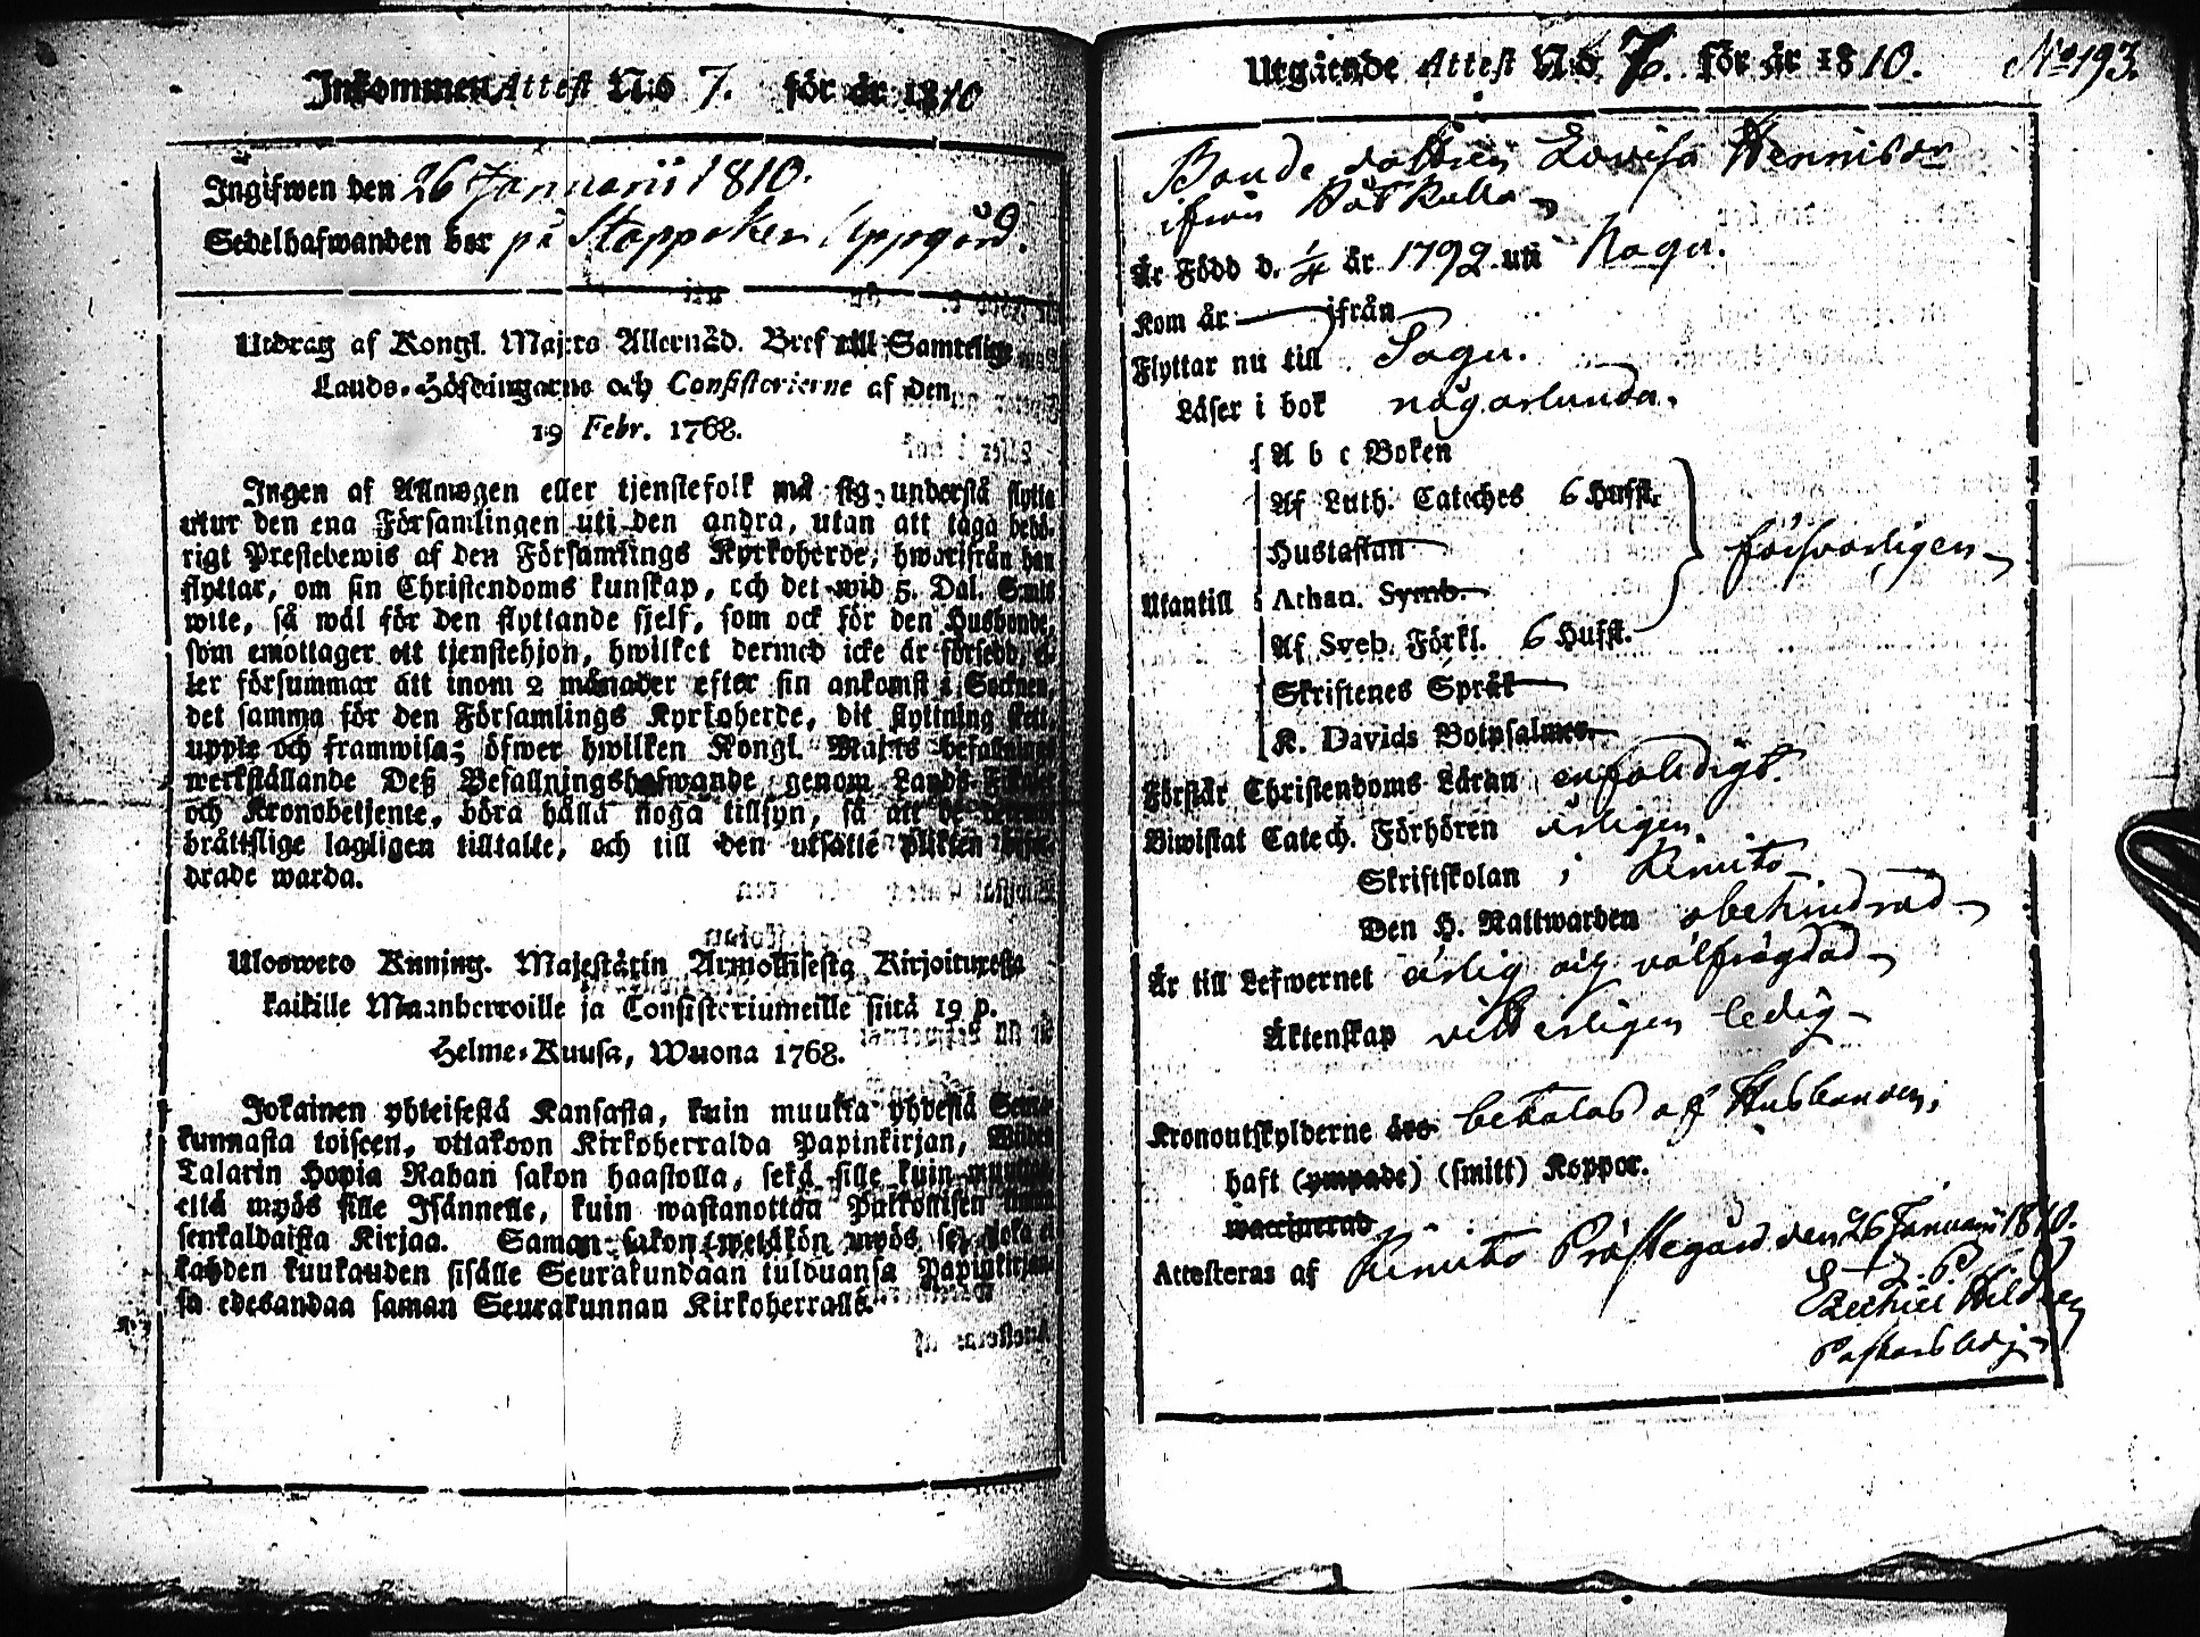 Inkommen Attest N:o 7. för år 1810
Ingifwen den 26 Januarii 1810.
Sedelhafwanden bor på Stoppoker Uppgård.
Utdrag af Kongl. Maj:ts Allernåd. Bref till Samtelige
Lands-Höfdingarne och Consistorierne af den
19 Febr. 1768.
Ingen af Allmogen eller tjenstefolk må sig understå flytta
utur den ena Församlingen uti den andra, utan att taga behö-
rigt Prestebewis af den Församlings Kyrkoherde, hwarifrån han
flyttar, om sin Christendoms kunskap, och det wid 5. Dal. Smts
wite, så wäl för den flyttande sjelf, som ock för den Husbonde,
som emottager ett tjenstehjon, hwilket dermed icke är försedd, el-
ler försummar att inom 2 månader efter sin ankomst i Socknen,
det samma för den Församlings Kyrkoherde, dit flyttning skett,
uppte och framwisa; öfwer hwilken Kongl. Maj:ts befallnings
werkställande Deß Befallningshafwande genom Lands-Fiskaler
och Kronobetjente, böra hålla noga tillsyn, så att de
bråttslige lagligen tilltalte, och till den utsatte plikten
drade warda.
Uloswero Kuning. Majestätin Armollisesta Kirjoituxesta
kaikille Maanherroille ja Consistoriumeille siitä 19 p.
Helme-Kuusa, Wuona 1768.
Jokainen yhteisestä Kansasta, kuin muutta yhdestä Seura-
kunnasta toiseen, ottakoon Kirkoherralda Papinkirjan, Wiiden
Talarin Hopia Rahan sakon haastolla, sekä sille kuin muutta,
että myös sille Isännelle, kuin wastanottaa Palkollisen ilman
senkaldaista Kirjaa. Saman sakon wetäkön myös se, joka ei
kahden kuukauden sisälle Seurakundaan tulduansa Papinkirjan-
sa edesandaa saman Seurakunnan Kirkoherralle.
Utgående Attest N:o 7. för år 1810. No 193.
Bonde dottren Lovisa Hennisdr
ifrån
Är Född d. 1/4 år 1792 uti Nagu.
Kom år ifrån
Flyttar nu till Sagu.
Läser i bok någorlunda.
A b c Boken
Af Luth. Cateches 6 Husst.
Hustaflan
försvarligen
Utantill Athan. Symb.
Af Sveb. Förkl. 6 Husst.
Skriftenes Språk
K. Davids Botpsalmer
Förstår Christendoms Läran enfaldigt.
Biwistat Catech. Förhören årligen.
Skriftskolan i Kimito
Den H. Nattwarden obehindrad
Är till Lefwernet ärlig och välfrägdad
Äktenskap vitterligen ledig
Kronoutskylderne äro betalas af Husbonden;
haft (ympade) (smitt) Koppor.
waccinerad
Attesteras af Kimito Prästegård den 26 Januarii 1810.
Ezechiel
Pastors Adj.